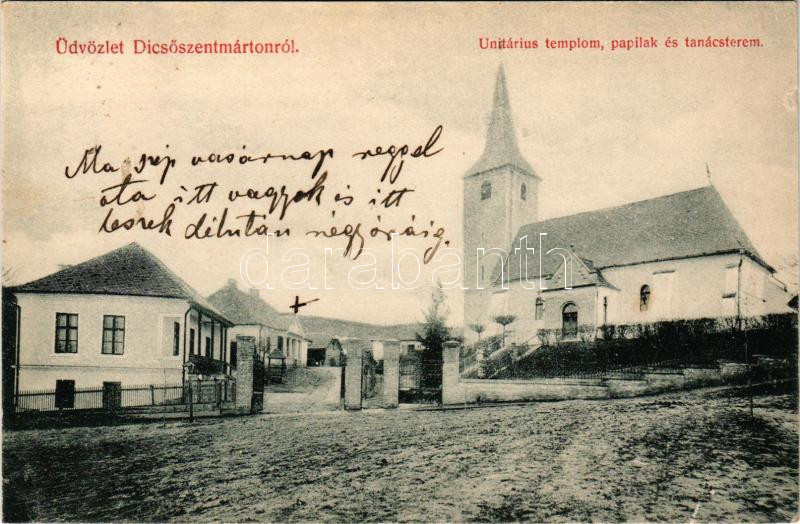 Üdvözlet Dicsőszentmártonról.
Unitárius templom, papilak és tanácsterem.
Ma szép vasárnap reggel
óta itt vagyok és itt
leszek délután négyóráig.
darabanth